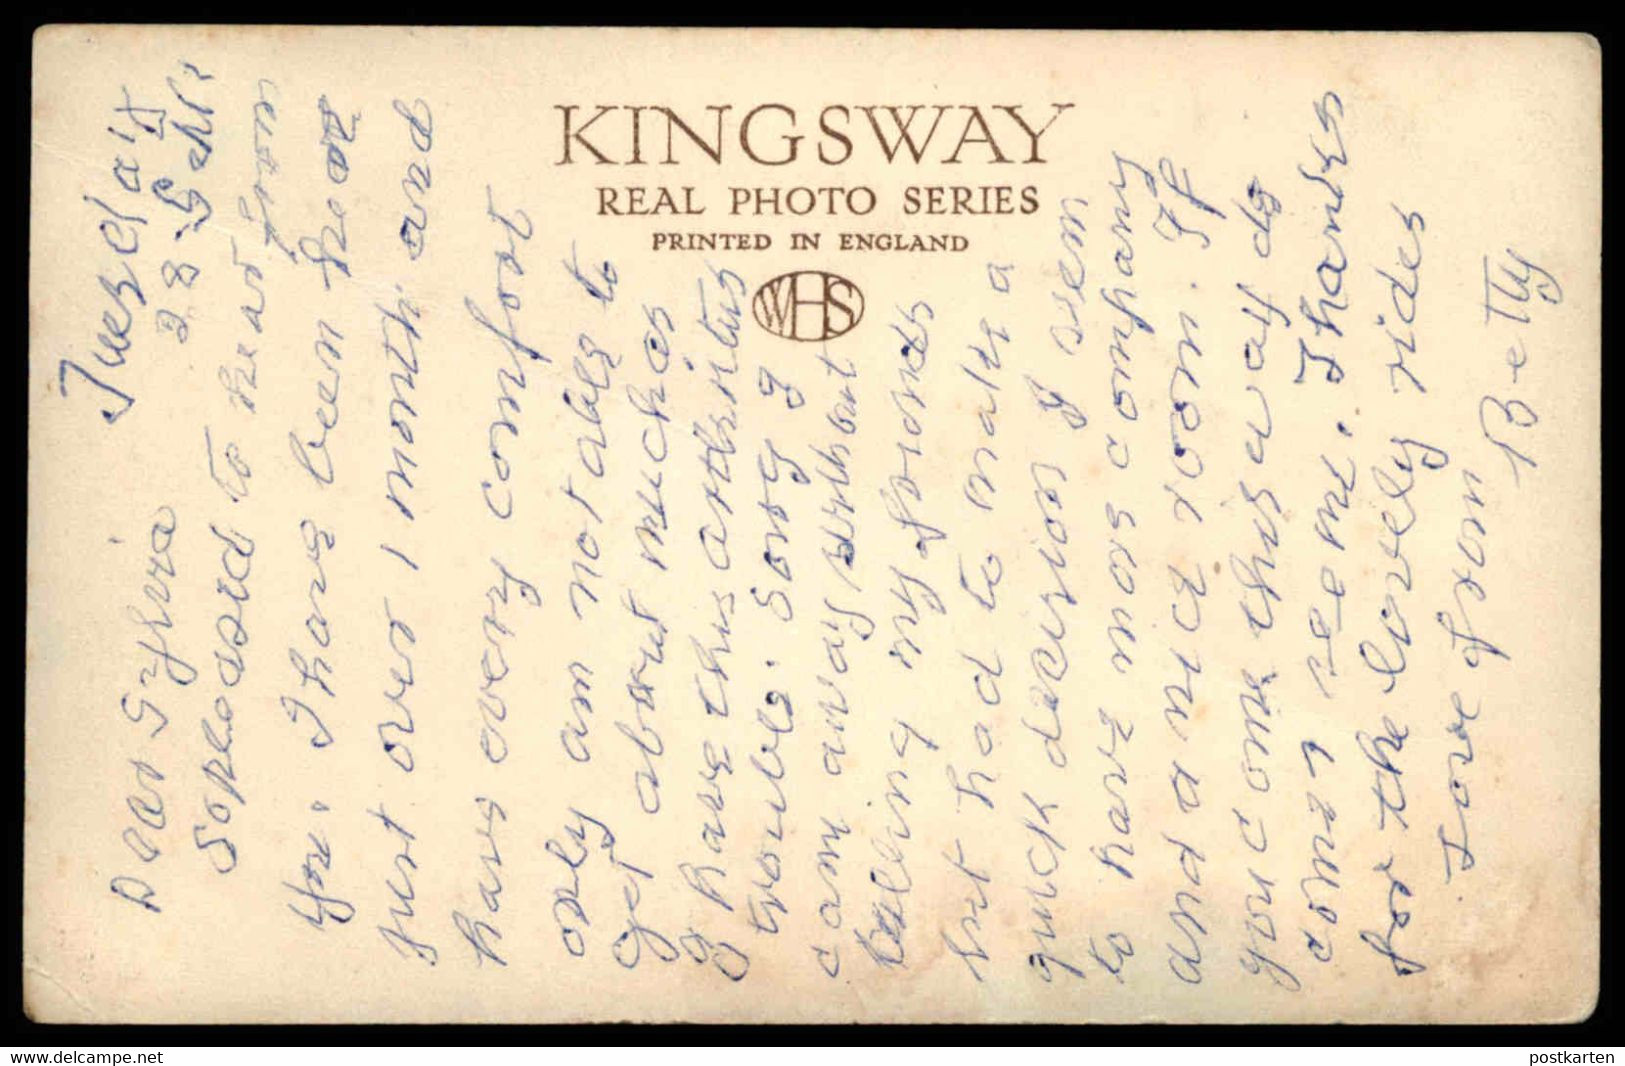 KINGSWAY
REAL PHOTO SERIES
PRINTED IN ENGLAND
WHS
Tuesday
28. Sept.
Dear Sylvia
So pleased to hear from
you. I have been here
just over 1 month and
have every comfort
only am not able to
get about much as
I have this arthritus
trouble. Sorry I
cam away without
telling my friends
but had to make a
quick decision I seem
to have more company
and a nice room. If
you come this way do
come & see me. Thanks
for the lovely rides
Love from
Betty
www.delcampe.net
postkarten